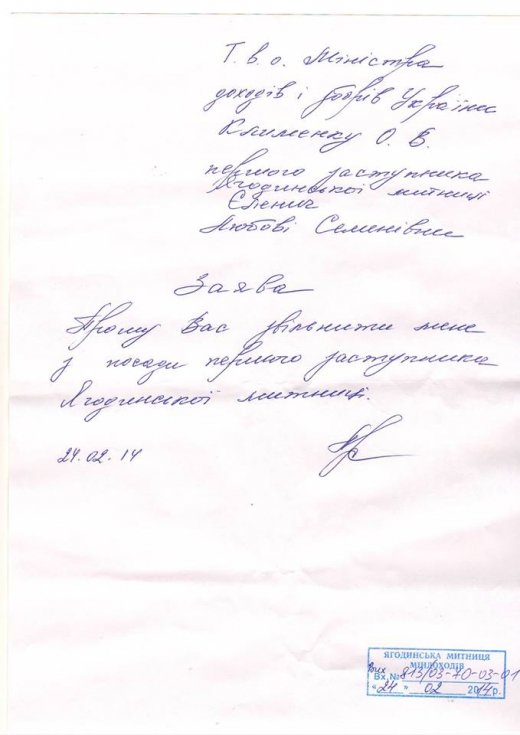 Т.в.о. Міністра
доходів і зборів України
Клименку О. В.
першого заступника
Ягодинської митниці
Єленич
Любові Семенівни
Заява
Прошу Вас звільнити мене
з посади першого заступника
Ягодинської митниці.
24.02.14
ЯГОДИНСЬКА МИТНИЦЯ
МІНДОХОДІВ
Вих
Вх.№813/03-70-03-01
"24" 02 2014р.